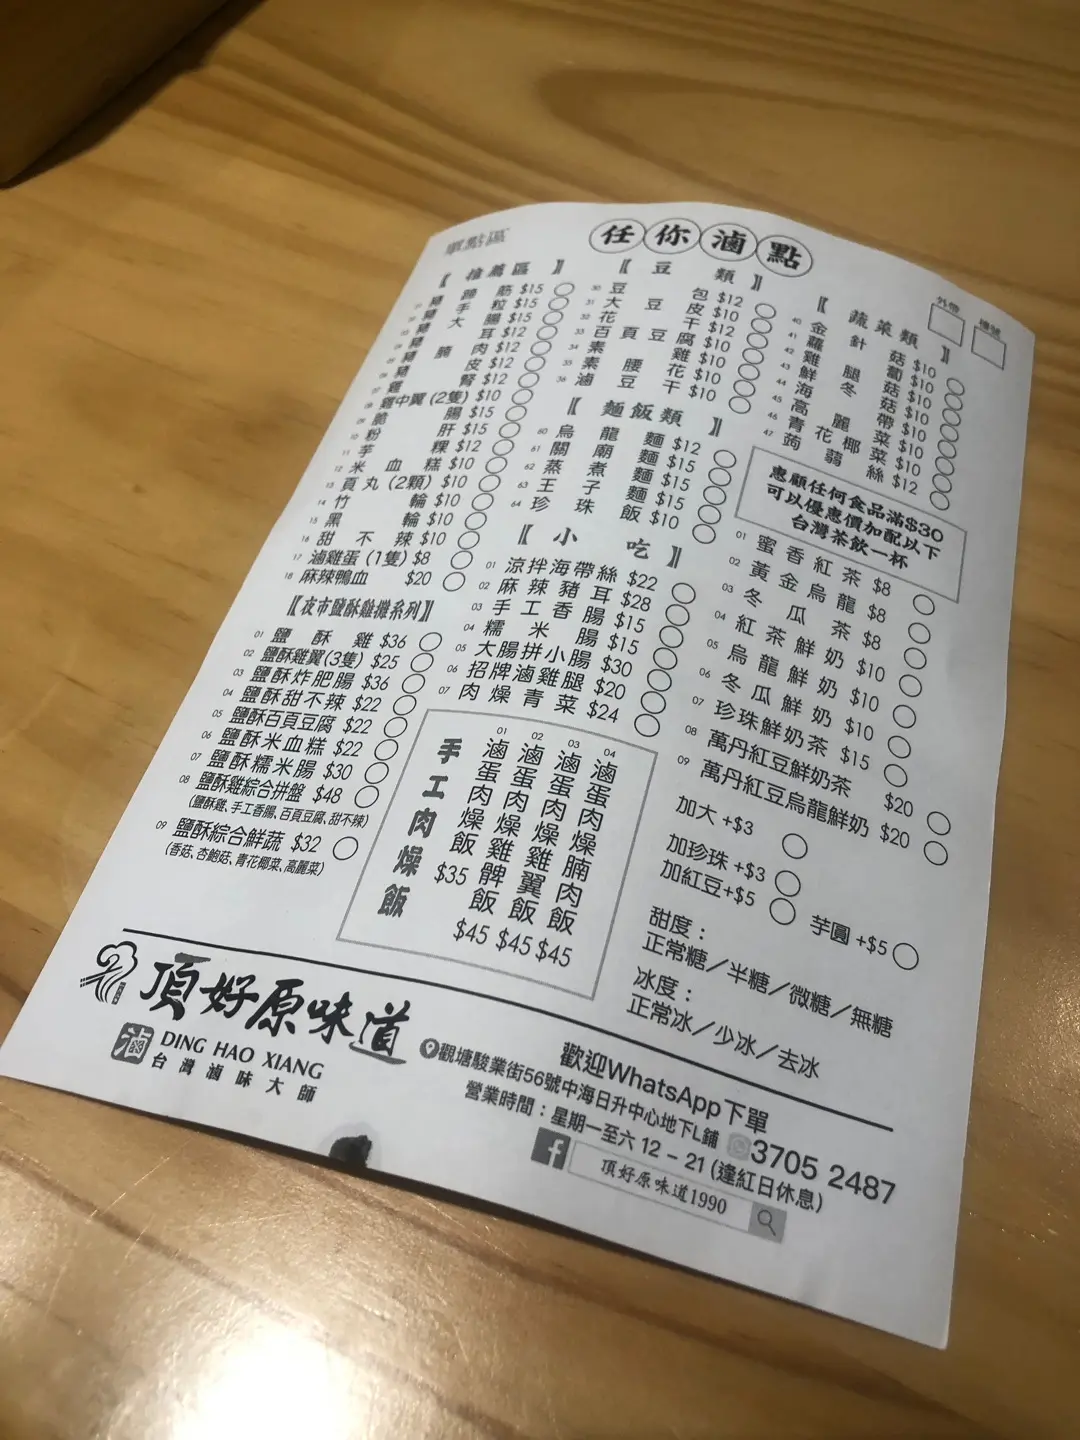 單點區
任你滷點
外帶
檯號
【推薦區】
豬蹄筋 $15
豬手粒 $15
豬大腸 $15
豬耳 $12
豬腩肉 $12
豬皮 $12
雞腎 $12
08 雞中翼(2隻) $10
09 脆腸 $15
10 粉肝 $15
11 芋粿 $12
12 米血糕 $10
13 貢丸(2顆) $10
14 竹輪 $10
15 黑輪 $10
16 甜不辣 $10
17 滷雞蛋(1隻) $8
18 麻辣鴨血 $20
【夜市鹽酥雞攤系列】
01 鹽酥雞 $36
02 鹽酥雞翼(3隻) $25
03 鹽酥炸肥腸 $36
04 鹽酥甜不辣 $22
05 鹽酥百頁豆腐 $22
06 鹽酥米血糕 $22
07 鹽酥糯米腸 $30
08 鹽酥雞綜合拼盤 $48
(鹽酥雞、手工香腸、百頁豆腐、甜不辣)
09 鹽酥綜合鮮蔬 $32
(香菇、杏鮑菇、青花椰菜、高麗菜)
【豆類】
30 豆包 $12
31 大豆皮 $10
32 花干 $12
33 百頁豆腐 $10
34 素雞 $10
35 素腰花 $10
36 滷豆干 $10
【麵飯類】
60 烏龍麵 $12
61 關廟麵 $15
62 蒸煮麵 $15
63 王子麵 $15
64 珍珠飯 $10
【小吃】
01 涼拌海帶絲 $22
02 麻辣豬耳 $28
03 手工香腸 $15
04 糯米腸 $15
05 大腸拼小腸 $30
06 招牌滷雞腿 $20
07 肉燥青菜 $24
手工肉燥飯
01 滷蛋肉燥飯 $35
02 滷蛋肉燥雞髀飯 $45
03 滷蛋肉燥雞翼飯 $45
04 滷蛋肉燥腩肉飯 $45
【蔬菜類】
40 金針菇 $10
41 蘿蔔 $10
42 雞腿菇 $10
43 鮮冬菇 $10
44 海帶 $10
45 高麗菜 $10
46 青花椰菜 $10
47 蒟蒻絲 $12
惠顧任何食品滿$30
可以優惠價加配以下
台灣茶飲一杯
01 蜜香紅茶 $8
02 黃金烏龍 $8
03 冬瓜茶 $8
04 紅茶鮮奶 $10
05 烏龍鮮奶 $10
06 冬瓜鮮奶 $10
07 珍珠鮮奶茶 $15
08 萬丹紅豆鮮奶茶 $20
09 萬丹紅豆烏龍鮮奶 $20
加大 +$3
加珍珠 +$3
加紅豆+$5
芋圓 +$5
甜度：
正常糖／半糖／微糖／無糖
冰度：
正常冰／少冰／去冰
頂好原味道
滷
DING HAO XIANG
台灣滷味大師
歡迎WhatsApp下單
觀塘駿業街56號中海日升中心地下L鋪
3705 2487
營業時間：星期一至六 12 – 21 (逢紅日休息)
f
頂好原味道1990